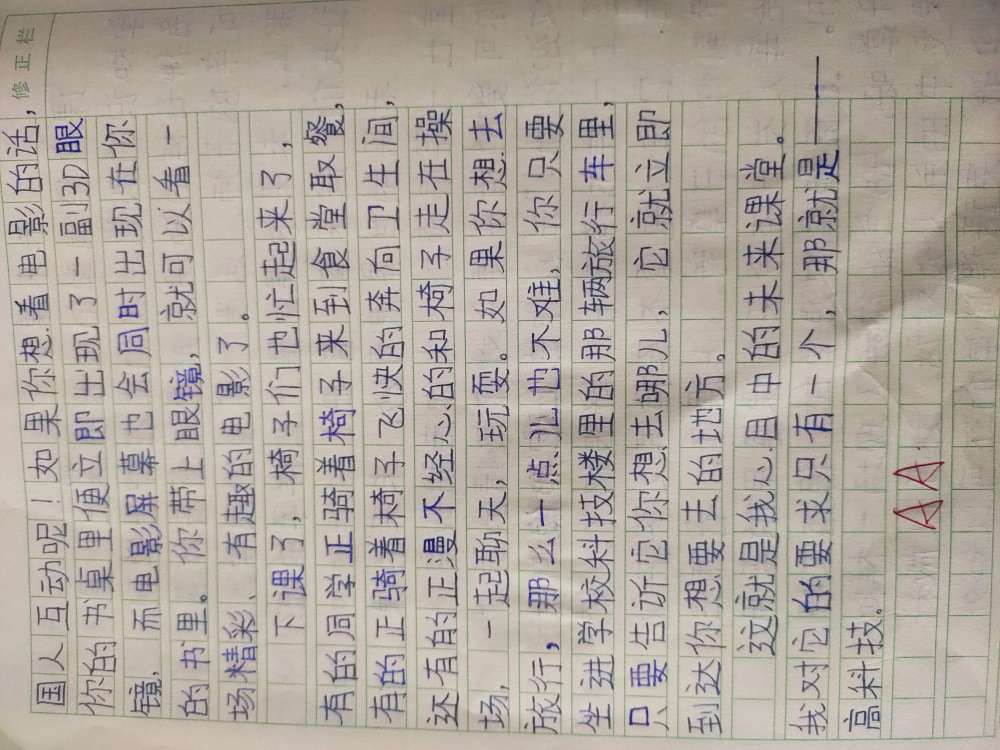 修正栏
国人互动呢！如果你想看电影的话，
你的书桌里便立即出现了一副3D眼
镜，而电影屏幕也会同时出现在你
的书里。你带上眼镜，就可以看一
场精彩、有趣的电影了。
下课了，椅子们也忙起来了，
有的同学正骑着椅子来到食堂取餐，
有的正骑着椅子飞快的奔向卫生间，
还有的正漫不经心的和椅子走在操
场，一起聊天，玩耍。如果你想去
旅行，那么一点儿也不难，你只要
坐进学校科技楼里的那辆旅行车里，
只要告诉它你想去哪儿，它就立即
到达你想要去的地方。
这就是我心目中的未来课堂。
我对它的要求只有一个，那就是——
高科技。
AA